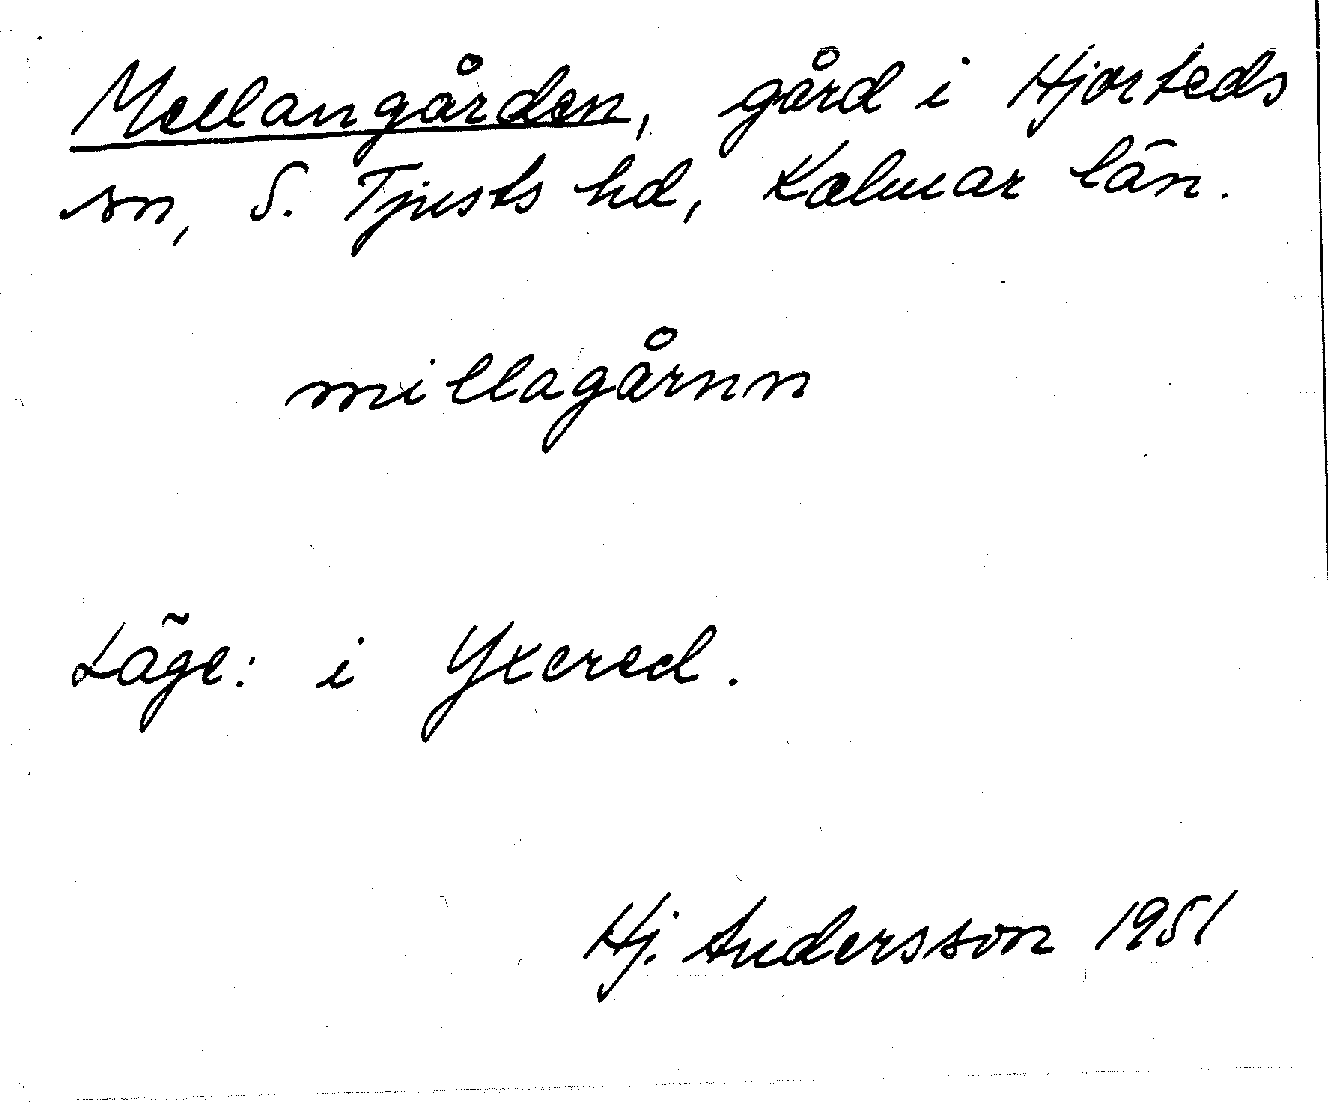 Mellangården, gård i Hjorteds
sn, S. Tjusts hd, Kalmar län.
millagårnn
Läge: i Yxered.
Hj. Andersson 1951